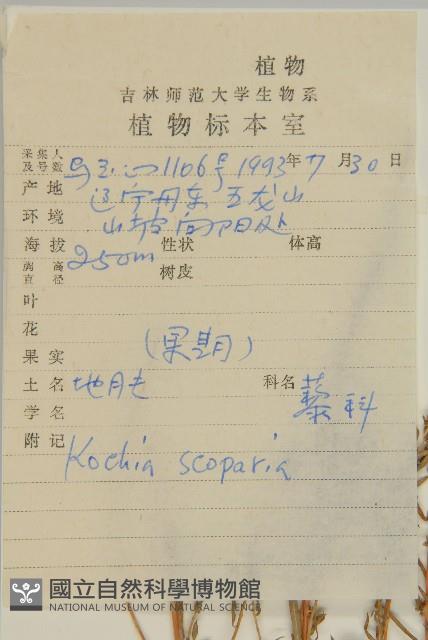 植物
吉林师范大学生物系
植物标本室
采集人及号数 1106号 1993年 月30日
产地 辽宁丹东五龙山
环境 山坡向阳处
海拔 250m 性状 体高
胸高直径 树皮
叶
花
果实 (果期)
土名 地肤 科名 藜科
学名
附记 Kochia scoparia
國立自然科學博物館
NATIONAL MUSEUM OF NATURAL SCIENCE